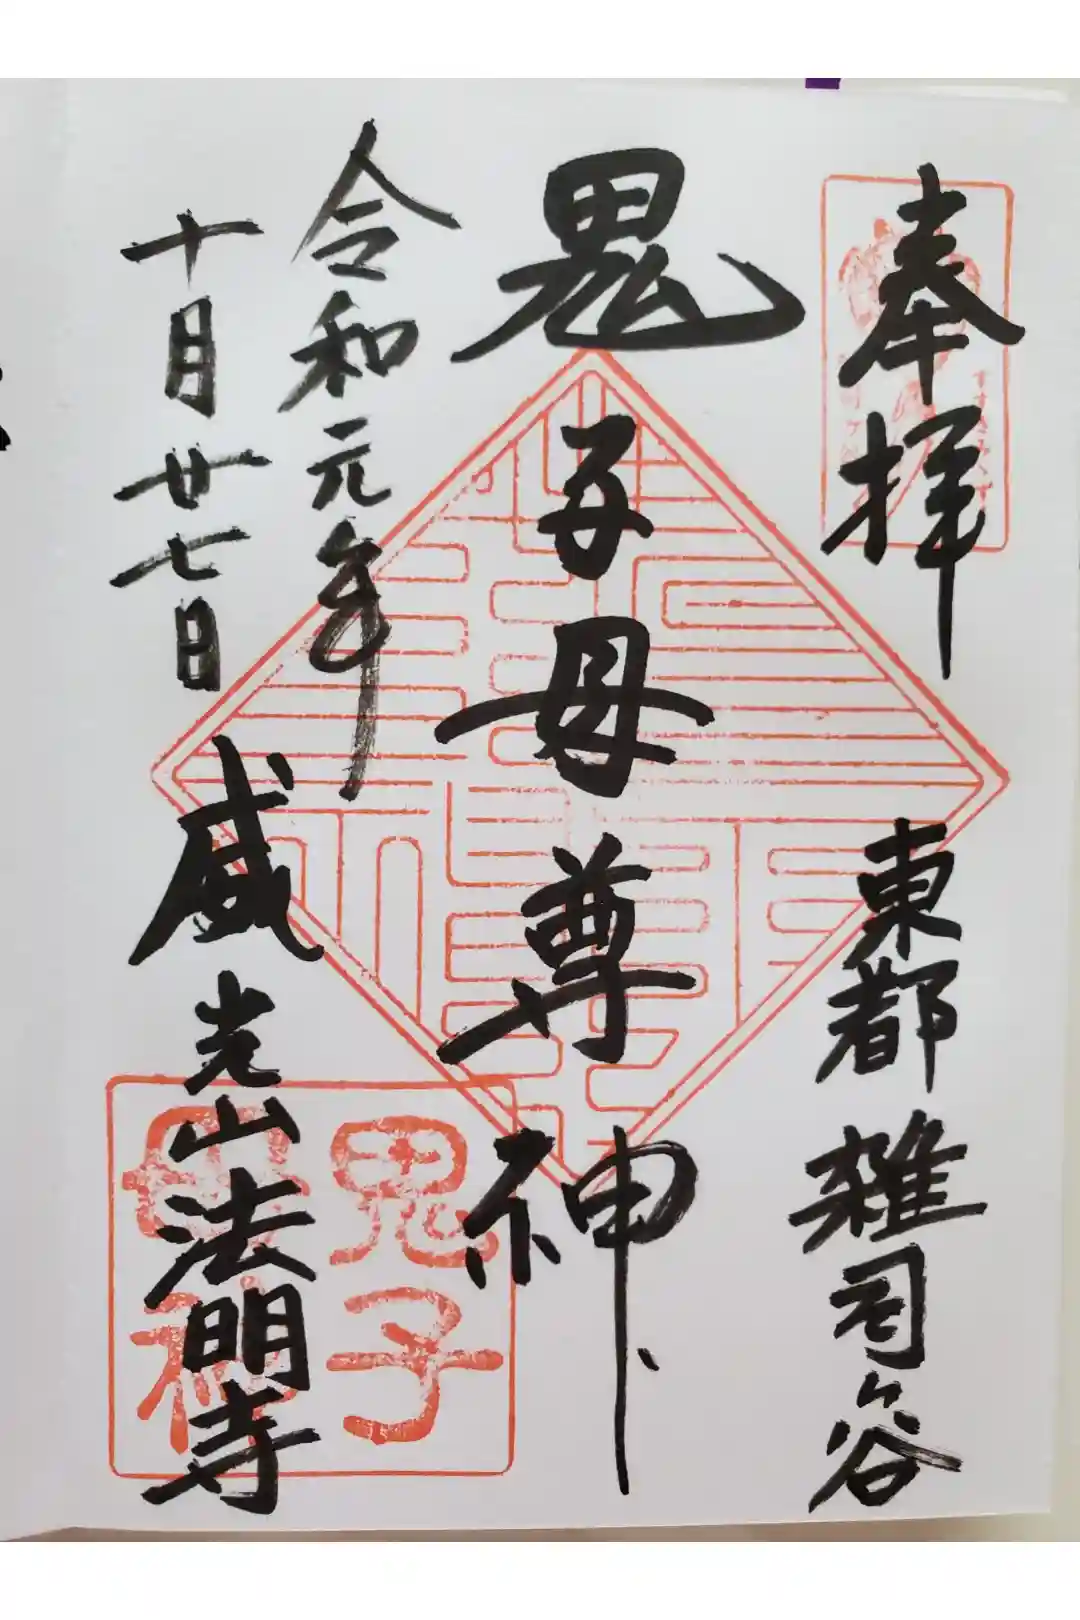 奉拝
東都雑司ヶ谷
鬼子母尊神
令和元年
十月廿七日
威光山法明寺
鬼子
母神